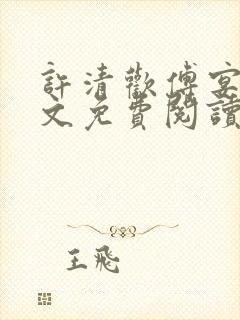 許清歡傅宴
文免費閱讀
王飛